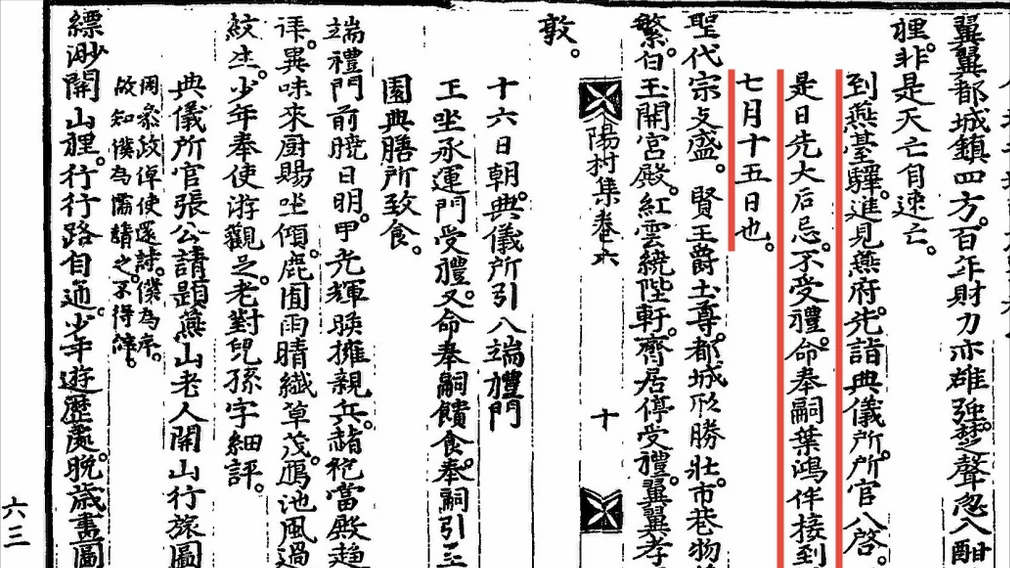 翼翼都城鎮四方。百年財力亦雄强。楚聲忽入酣
裡。非是天亡自速亡。
到燕臺驛。進見燕府。先詣典儀所。所官入啓。
是日先太后忌。不受禮。命奉嗣葉鴻伴接到
七月十五日也。
聖代宗支盛。賢王爵土尊。都城形勝壯。市巷物
繁。白玉開宮殿。紅雲繞陛軒。齊居停受禮。翼翼孝
敦。
陽村集卷六
十
十六日朝。典儀所引入端禮門
王坐承運門受禮。又命奉嗣饋食。奉嗣引至
園典膳所致食。
端禮門前曉日明。甲光輝映擁親兵。赭袍當殿趍
異味來厨賜坐傾。鹿囿雨晴纖草茂。鴈池風過
紋生。少年奉使游觀足。老對兒孫字細評。
典儀所官張公請題燕山老人開山行旅圖
使還詩。僕為序。
故知僕為儒請之。不得辭。
縹渺開山裡。行行路自通。少年遊歷處。晚歲畫圖
六三